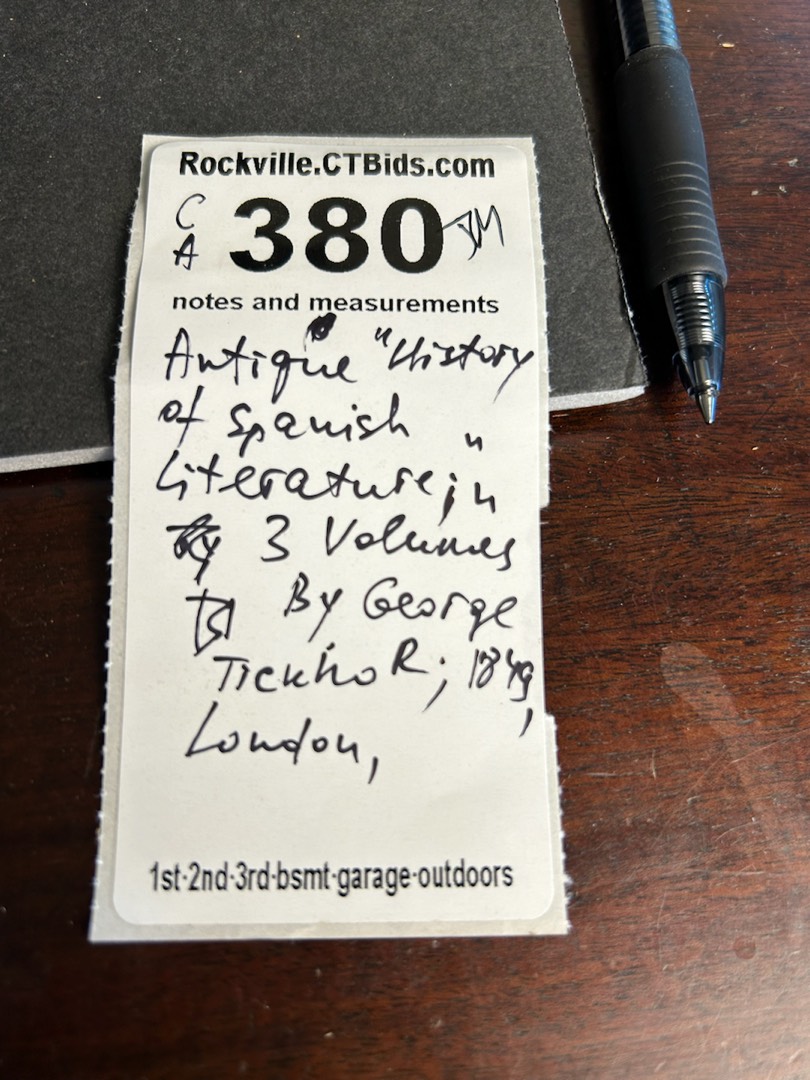 Rockville.CTBids.com
C
A 380 JM
notes and measurements
Antique "History
of Spanish
Literature" in
3 Volumes
By George
TicknoR; 1849,
London,
1st-2nd-3rd-bsmt-garage-outdoors